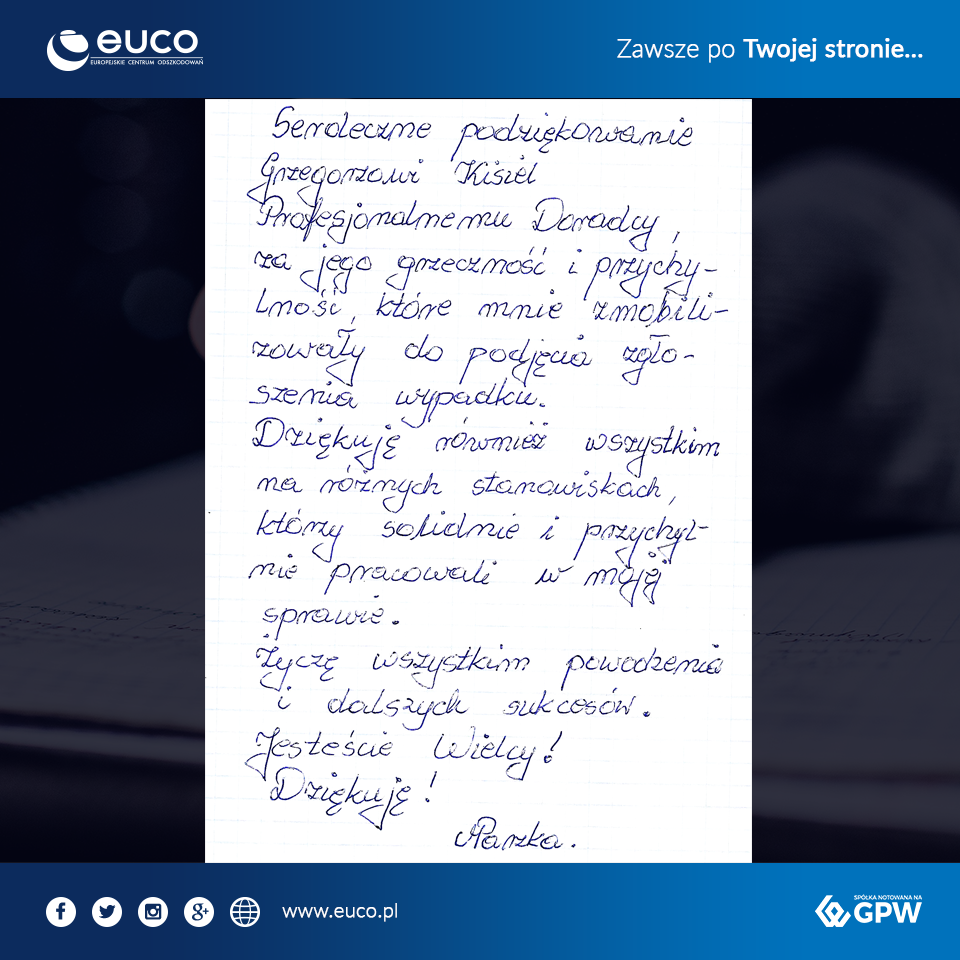 euco
EUROPEJSKIE CENTRUM ODSZKODOWAŃ
Zawsze po Twojej stronie...
Serdeczne podziękowanie
Grzegorzowi Kisiel
Profesjonalnemu Doradcy,
za jego grzeczność i przychy-
lność, które mnie zmobili-
zowały do podjęcia zgło-
szenia wypadku.
Dziękuję również wszystkim
na różnych stanowiskach,
którzy solidnie i przychyl-
nie pracowali w mojej
sprawie.
Życzę wszystkim powodzenia
i dalszych sukcesów.
Jesteście Wielcy!
Dziękuję!
www.euco.pl
SPÓŁKA NOTOWANA NA
GPW